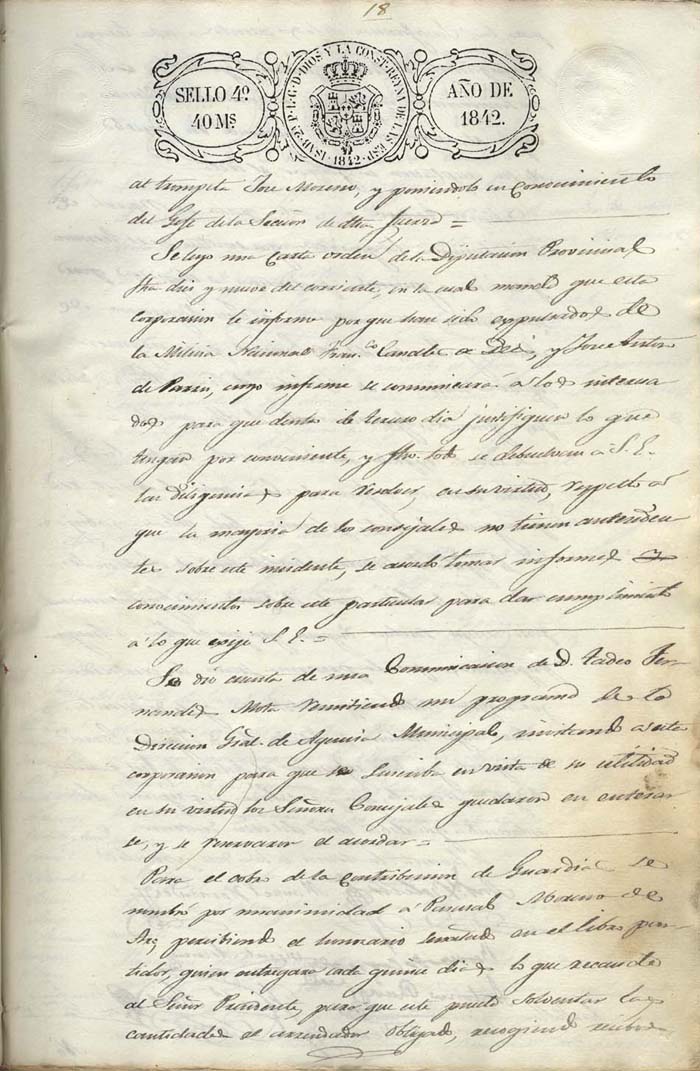 18
SELLO 4º
40 Ms
ISAB. 2ª P. L. G. D. DIOS Y LA CONST. REYNA DE LAS ESP.
1842
AÑO DE
1842.
al trompeta Jose Moreno, y poniendolo en conocimiento
del Gefe de la Seccion de dha fuerza =
Se leyo una Carta orden de la Diputacion Provincial
fha dies y nueve del corriente, en la cual manda que esta
corporacion le informe por que han sido expulsados de
la Milicia Nacional Fran.co Canale, y Jose Anto
de, cuyo informe se comunicara a los interesa
dos para que dentro de tercero dia justifiquen lo que
tengan por conveniente, y fho. todo se debuelvan a S. E.
las diligencias para resolver, en su virtud, respecto a
que la mayoria de los consejales no tienen anteceden
tes sobre este insidente, se acordo tomar informes y
conocimientos sobre este particular para dar cumplimiento
a lo que exije S. E. =
Se dio cuenta de una Comunicacion de D. Tadeo Fer
nandes Mota remitiendo un programa de la
Direccion Gral. de Agencia Municipal, invitando a esta
corporacion para que se suscriba en vista de su utilidad
en su virtud los Señores Consejales quedaron en enterar
se, y se reservaron el acordar =
Para el cobro de la Contribucion de Guardias se
nombró por unanimidad á Pascual Moreno de
percibiendo el honorario señalado en el libro
quien entregara cada quince dias lo que recaude
al Señor Presidente, para que este pueda solventar las
cantidades al arrendador obligado, recogiendo recibo